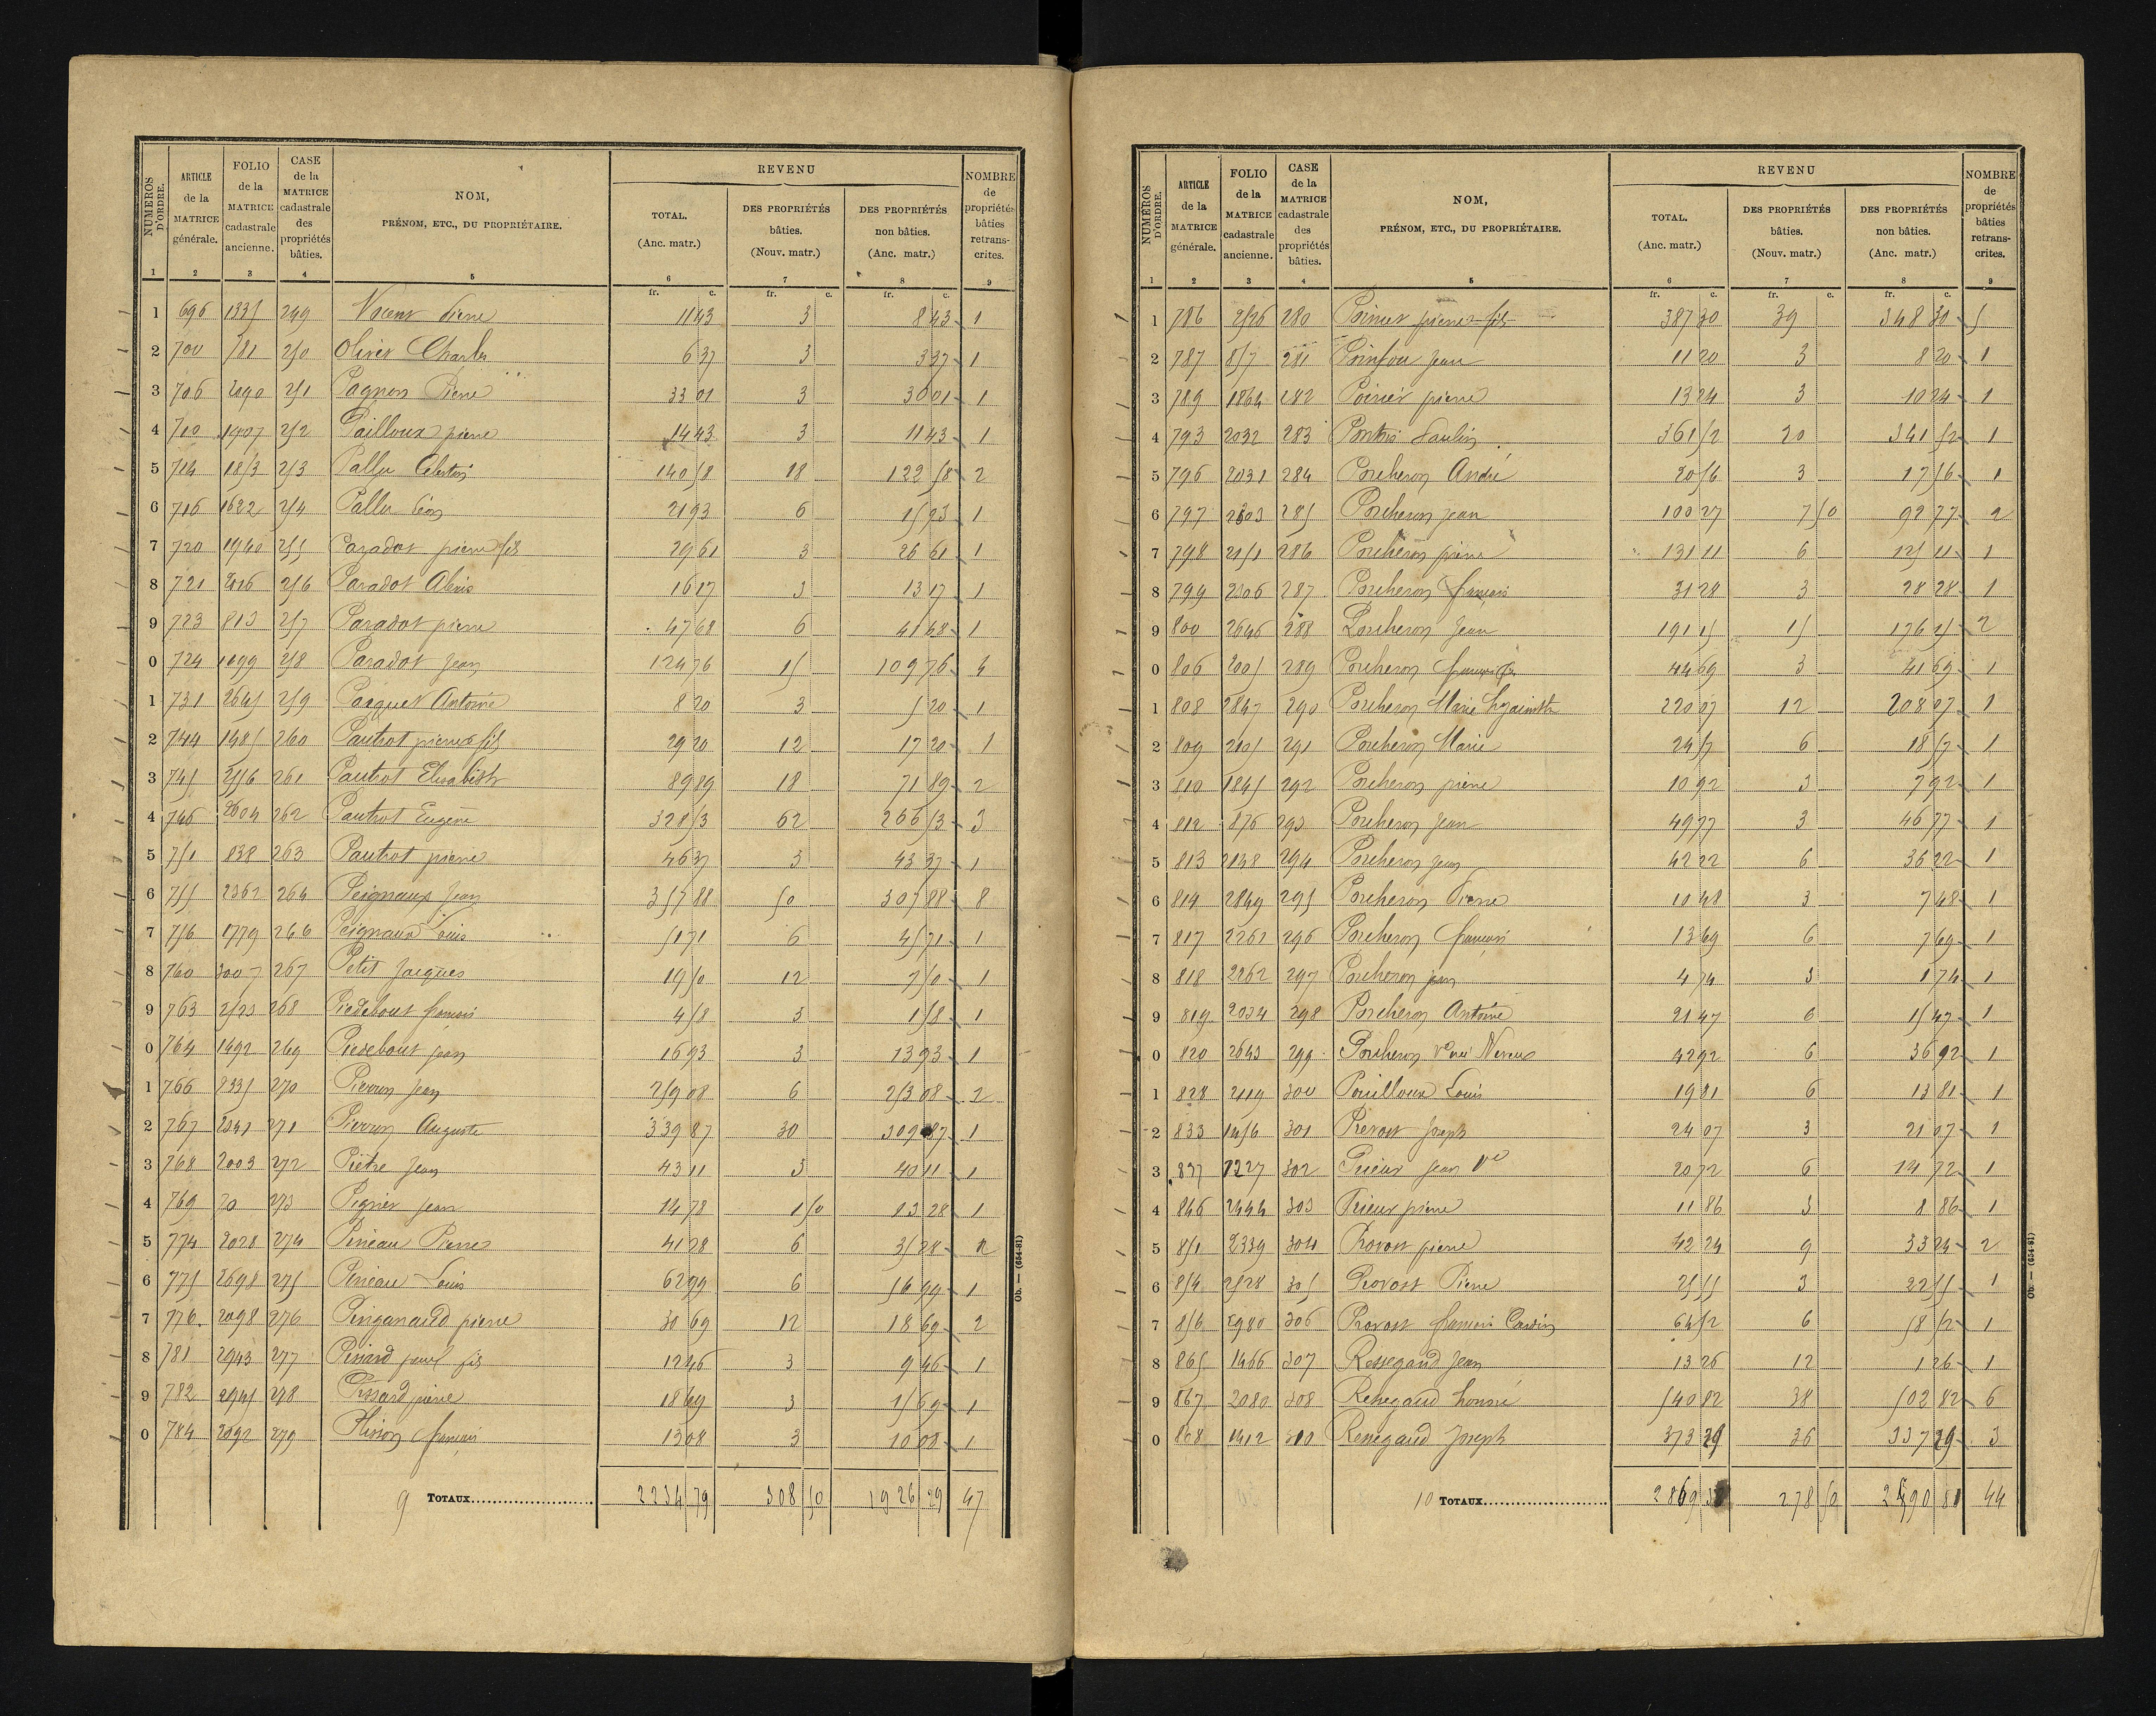 NUMÉROS D'ORDRE. ARTICLE de la MATRICE générale. FOLIO de la MATRICE cadastrale ancienne. CASE de la MATRICE cadastrale des propriétés bâties. NOM, PRÉNOM, ETC., DU PROPRIÉTAIRE. REVENU TOTAL. (Anc. matr.) DES PROPRIÉTÉS bâties. (Nouv. matr.) DES PROPRIÉTÉS non bâties. (Anc. matr.) NOMBRE de propriétés bâties retranscrites.
1 2 3 4 5 6 7 8 9
fr. c. fr. c. fr. c.
1 696 1335 249 Pierre 11 43 3 8 43 1
2 700 581 250 Olivier Charles 6 37 3 3 37 1
3 706 2090 251 Pagnon Pierre 33 01 3 30 01 1
4 710 1907 252 Pailloux pierre 14 43 3 11 43 1
5 714 1853 253 Pallu 140 58 18 122 58 2
6 716 1622 254 Pallu Léon 21 93 6 15 93 1
7 720 1940 255 Paradot pierre fils 29 61 3 26 61 1
8 721 2016 256 Paradot Alexis 16 17 3 13 17 1
9 723 813 257 Paradot pierre 47 68 6 41 68 1
0 724 1099 258 Paradot Jean 124 76 15 109 76 4
1 731 2645 259 Paquet Antoine 8 20 3 5 20 1
2 744 1485 260 Pautrot pierre fils 29 20 12 17 20 1
3 745 2556 261 Pautrot Elisabeth 89 89 18 71 89 2
4 746 2004 262 Pautrot Eugène 328 53 62 266 53 3
5 751 838 263 Pautrot pierre 46 37 3 43 37 1
6 755 2362 264 Peignaux Jean 357 88 50 307 88 8
7 756 1779 266 Peignaux Louis 51 71 6 45 71 1
8 760 3007 267 Petit Jacques 19 50 12 7 50 1
9 763 2523 268 Piedebout françois 4 58 3 1 58 1
0 764 1492 269 Piedebout Jean 16 93 3 13 93 1
1 766 2335 270 Pierron Jean 259 08 6 253 08 2
2 767 2341 271 Pierron Auguste 339 87 30 309 87 1
3 768 2003 272 Piètre Jean 43 11 3 40 11 1
4 769 70 273 Pignier Jean 14 78 1 50 13 28 1
5 774 2028 274 Pineau Pierre 41 28 6 35 28 2
6 775 2698 275 Pineau Louis 62 99 6 56 99 1
7 776 2098 276 Pinganaud pierre 30 69 12 18 69 2
8 781 2943 277 Pissard fils 12 46 3 9 46 1
9 782 2945 278 Pissard pierre 18 69 3 15 69 1
0 784 2092 279 Plisson françois 13 08 3 10 08 1
9 TOTAUX 2234 79 308 50 1926 29 47
Ob. — (654-81)
NUMÉROS D'ORDRE. ARTICLE de la MATRICE générale. FOLIO de la MATRICE cadastrale ancienne. CASE de la MATRICE cadastrale des propriétés bâties. NOM, PRÉNOM, ETC., DU PROPRIÉTAIRE. REVENU TOTAL. (Anc. matr.) DES PROPRIÉTÉS bâties. (Nouv. matr.) DES PROPRIÉTÉS non bâties. (Anc. matr.) NOMBRE de propriétés bâties retranscrites.
1 2 3 4 5 6 7 8 9
fr. c. fr. c. fr. c.
1 786 2526 280 pierre fils 387 30 39 348 30 5
2 787 857 281 Poinfou Jean 11 20 3 8 20 1
3 789 1864 282 Poirier pierre 13 24 3 10 24 1
4 793 2032 283 Paulin 361 52 20 341 52 1
5 796 2031 284 Porcheron André 20 56 3 17 56 1
6 797 2603 285 Porcheron Jean 100 27 7 50 92 77 2
7 798 2151 286 Porcheron pierre 131 11 6 125 11 1
8 799 2306 287 Porcheron françois 31 28 3 28 28 1
9 800 2646 288 Porcheron Jean 191 15 15 176 15 2
0 806 2005 289 Porcheron françois fils 44 69 3 41 69 1
1 808 2847 290 Porcheron Marie hyacinthe 220 07 12 208 07 1
2 809 2105 291 Porcheron Marie 24 57 6 18 57 1
3 810 1845 292 Porcheron pierre 10 92 3 7 92 1
4 812 876 293 Porcheron Jean 49 77 3 46 77 1
5 813 2138 294 Porcheron Jean 42 22 6 36 22 1
6 814 2849 295 Porcheron Pierre 10 48 3 7 48 1
7 817 2261 296 Porcheron françois 13 69 6 7 69 1
8 818 2262 297 Porcheron jean 4 74 3 1 74 1
9 819 2034 298 Porcheron Antoine 21 47 6 15 47 1
0 820 2643 299 Porcheron Vve née 42 92 6 36 92 1
1 828 2119 300 Pouilloux Louis 19 81 6 13 81 1
2 833 1456 301 Prevost Joseph 24 07 3 21 07 1
3 837 1227 302 Prieur Jean Ve 20 72 6 14 72 1
4 846 2444 303 Prieur pierre 11 86 3 8 86 1
5 851 2339 304 Provost pierre 42 24 9 33 24 2
6 854 2528 305 Provost Pierre 25 55 3 22 55 1
7 856 2980 306 Provost françois 64 52 6 58 52 1
8 865 1466 307 Ressegand Jean 13 26 12 1 26 1
9 867 2080 308 Ressegand honoré 540 82 38 502 82 6
0 868 1412 310 Ressegand Joseph 373 29 36 337 29 3
10 TOTAUX 2869 278 50 44
Ob. — (654-81)